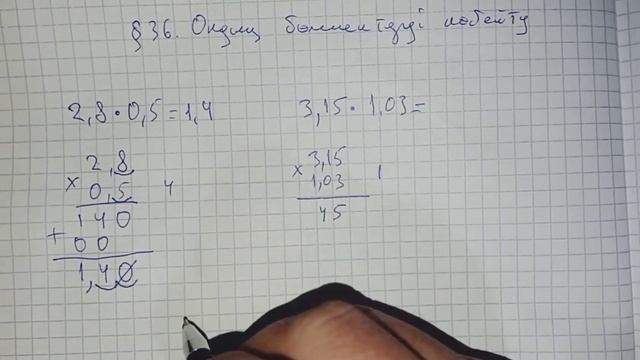 §36. Ондық бөлшектерді көбейту
2,8 · 0,5 = 1,4
2,8
× 0,5 4
140
+ 00
1,40
3,15 · 1,03 =
3,15
× 1,03 1
45